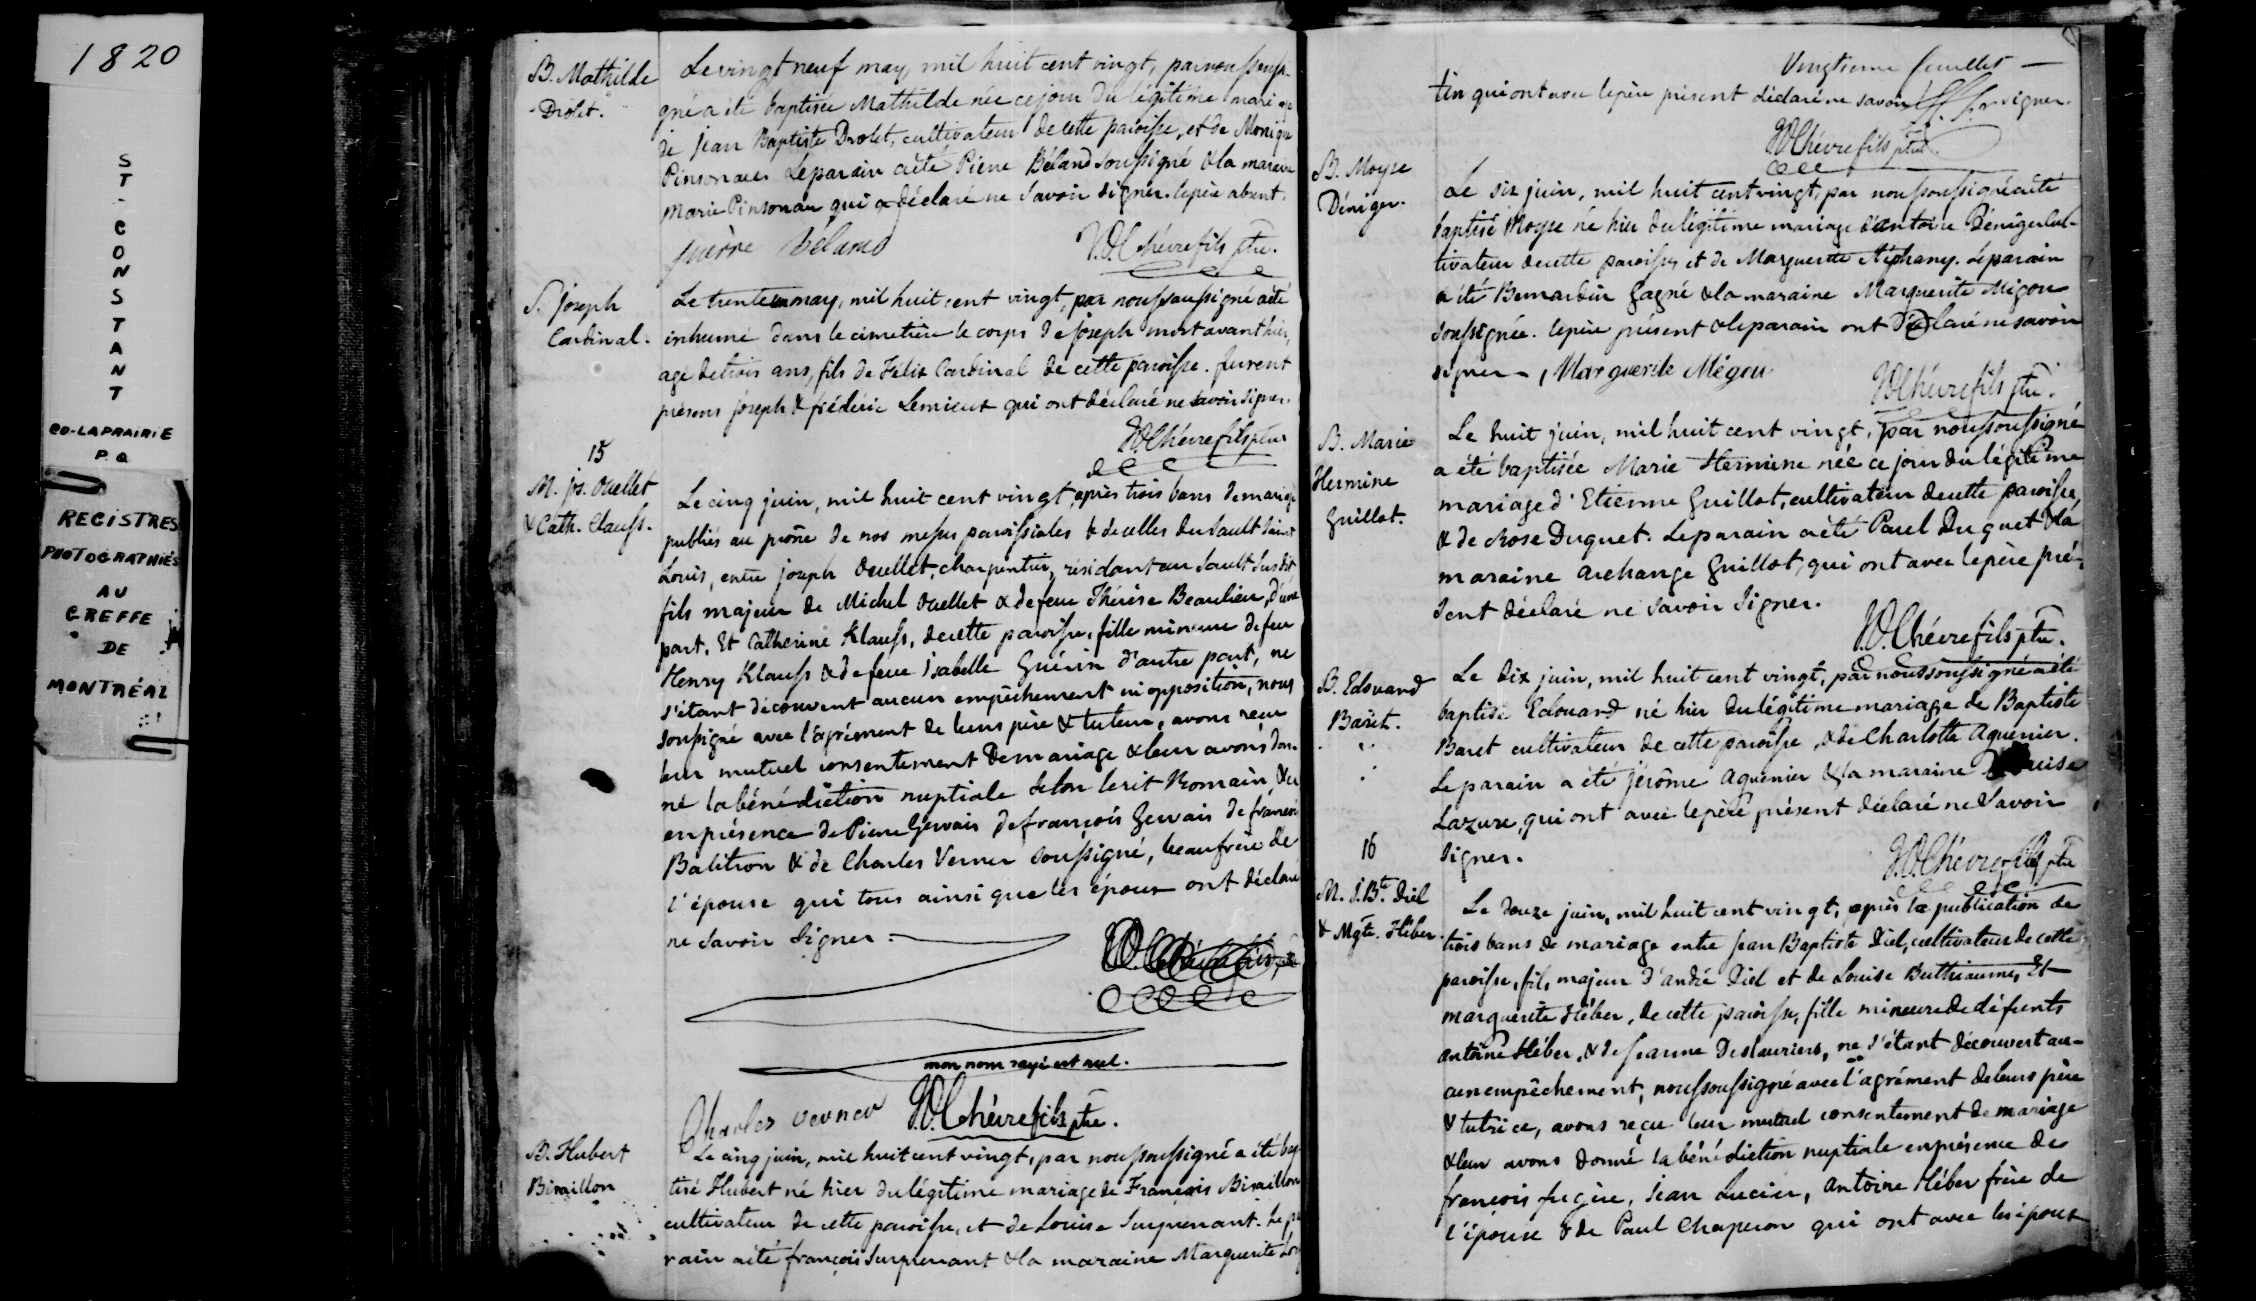 1820
ST-CONSTANT
CO-LAPRAIRIE
P.Q
REGISTRES
PHOTOGRAPHIÉS
AU
GREFFE
DE
MONTRÉAL
B. Mathilde
Drolet.
Le vingt neuf may, mil huit cent vingt, par nous soussi-
gné a été baptisée Mathilde née ce jour du légitime mariage
de Jean Baptiste Drolet, cultivateur de cette paroisse, et de Monique
Pinsonau. Le parain a été Pierre Béland soussigné & la maraine
Marie Pinsonau qui a déclaré ne savoir signer. le père absent.
pierre Béland
Chévrefils ptre.
S. Joseph
Cardinal.
Le trente may, mil huit cent vingt, par nous soussigné a été
inhumé dans le cimetière le corps de Joseph mort avant hier,
agé de trois ans, fils de Félix Cardinal de cette paroisse. furent
présens joseph & fréderic Lemieux qui ont déclaré ne savoir signer.
Chévrefils ptre
15
M. jos. Ouellet
& Cath. Clauss.
Le cinq juin, mil huit cent vingt, après trois bans de mariage
publiés au prône de nos messes paroissiales & de celles du Sault Saint
Louis, entre joseph Ouellet, charpentier, résidant au Sault susdit
fils majeur de Michel Ouellet & de feue Thérèse Beaulieu, d'une
part. Et Catherine Klauss, de cette paroisse, fille mineure de feu
Henry Klauss & de feue Isabelle Guérin d'autre part, ne
s'étant découvert aucun empêchement ni opposition, nous
soussigné avec l'agrément de leurs père & tuteur, avons reçu
leur mutuel consentement de mariage & leur avons don-
né la bénédiction nuptiale selon le rit Romain, &
en présence de Pierre Gervais de françois Gervais de francois
Balitron & de Charles Verner soussigné, beaufrère de
l'épouse qui tous ainsi que les époux ont déclaré
ne savoir signer.
mon nom rayé est nul.
Charles verner Chévrefils ptre.
B. Hubert
Biraillon
Le cinq juin, mil huit cent vingt, par nous soussigné a été bap
tisé Hubert né hier du légitime mariage de François Biraillon
cultivateur de cette paroisse, et de Louise Surprenant. Le pa
rain a été françois Surprenant & la maraine Marguerite
Vingtieme feuillet
tin qui ont avec le père présent déclaré ne savoir signer.
Chévrefils ptre
B. Moyse
Déniger.
Le six juin, mil huit cent vingt, par nous soussigné a été
baptisé Moyse né hier du légitime mariage d'antoine Déniger cul-
tivateur de cette paroisse et de Marguerite Stéphany. Le parain
a été Bernardin Gagné & la maraine Marguerite Migou
soussignée. le père présent & le parain ont déclaré ne savoir
signer, Marguerite Mégou
Chévrefils ptre.
B. Marie
Hermine
Guillot.
Le huit juin, mil huit cent vingt, par nous soussigné
a été baptisée Marie Hermine née ce jour du légitime
mariage d'Etienne Guillot, cultivateur de cette paroisse,
& de Rose Duquet. Le parain a été Paul Duquet & la
maraine Archange Guillot, qui ont avec le père pré-
sent déclaré ne savoir signer.
Chévrefils ptre.
B. Edouard
Baret.
Le dix juin, mil huit cent vingt, par nous soussigné a été
baptisé Edouard né hier du légitime mariage de Baptiste
Baret cultivateur de cette paroisse, & de Charlotte Aquenier.
Le parain a été Jérôme Aquenier & la maraine Louise
Lazure, qui ont avec le père présent déclaré ne savoir
signer.
Chévrefils ptre
16
M. J. Bte. Diel
& Mgte. Héber.
Le douze juin, mil huit cent vingt, après la publication de
trois bans de mariage entre Jean Baptiste Diel, cultivateur de cette
paroisse, fils majeur d'andré Diel et de Louise Buthiaume, Et
marguerite Héber, de cette paroisse, fille mineure de défunts
antoine Héber, & de Jeanne Deslauriers, ne s'étant découvert au-
cun empêchement, nous soussigné avec l'agrément de leurs père
& tutrice, avons reçu leur mutuel consentement de mariage
& leur avons donné la bénédiction nuptiale en présence de
françois fugère, Jean Lucier, antoine Héber frère de
l'épouse & de Paul Chaperon qui ont avec les époux